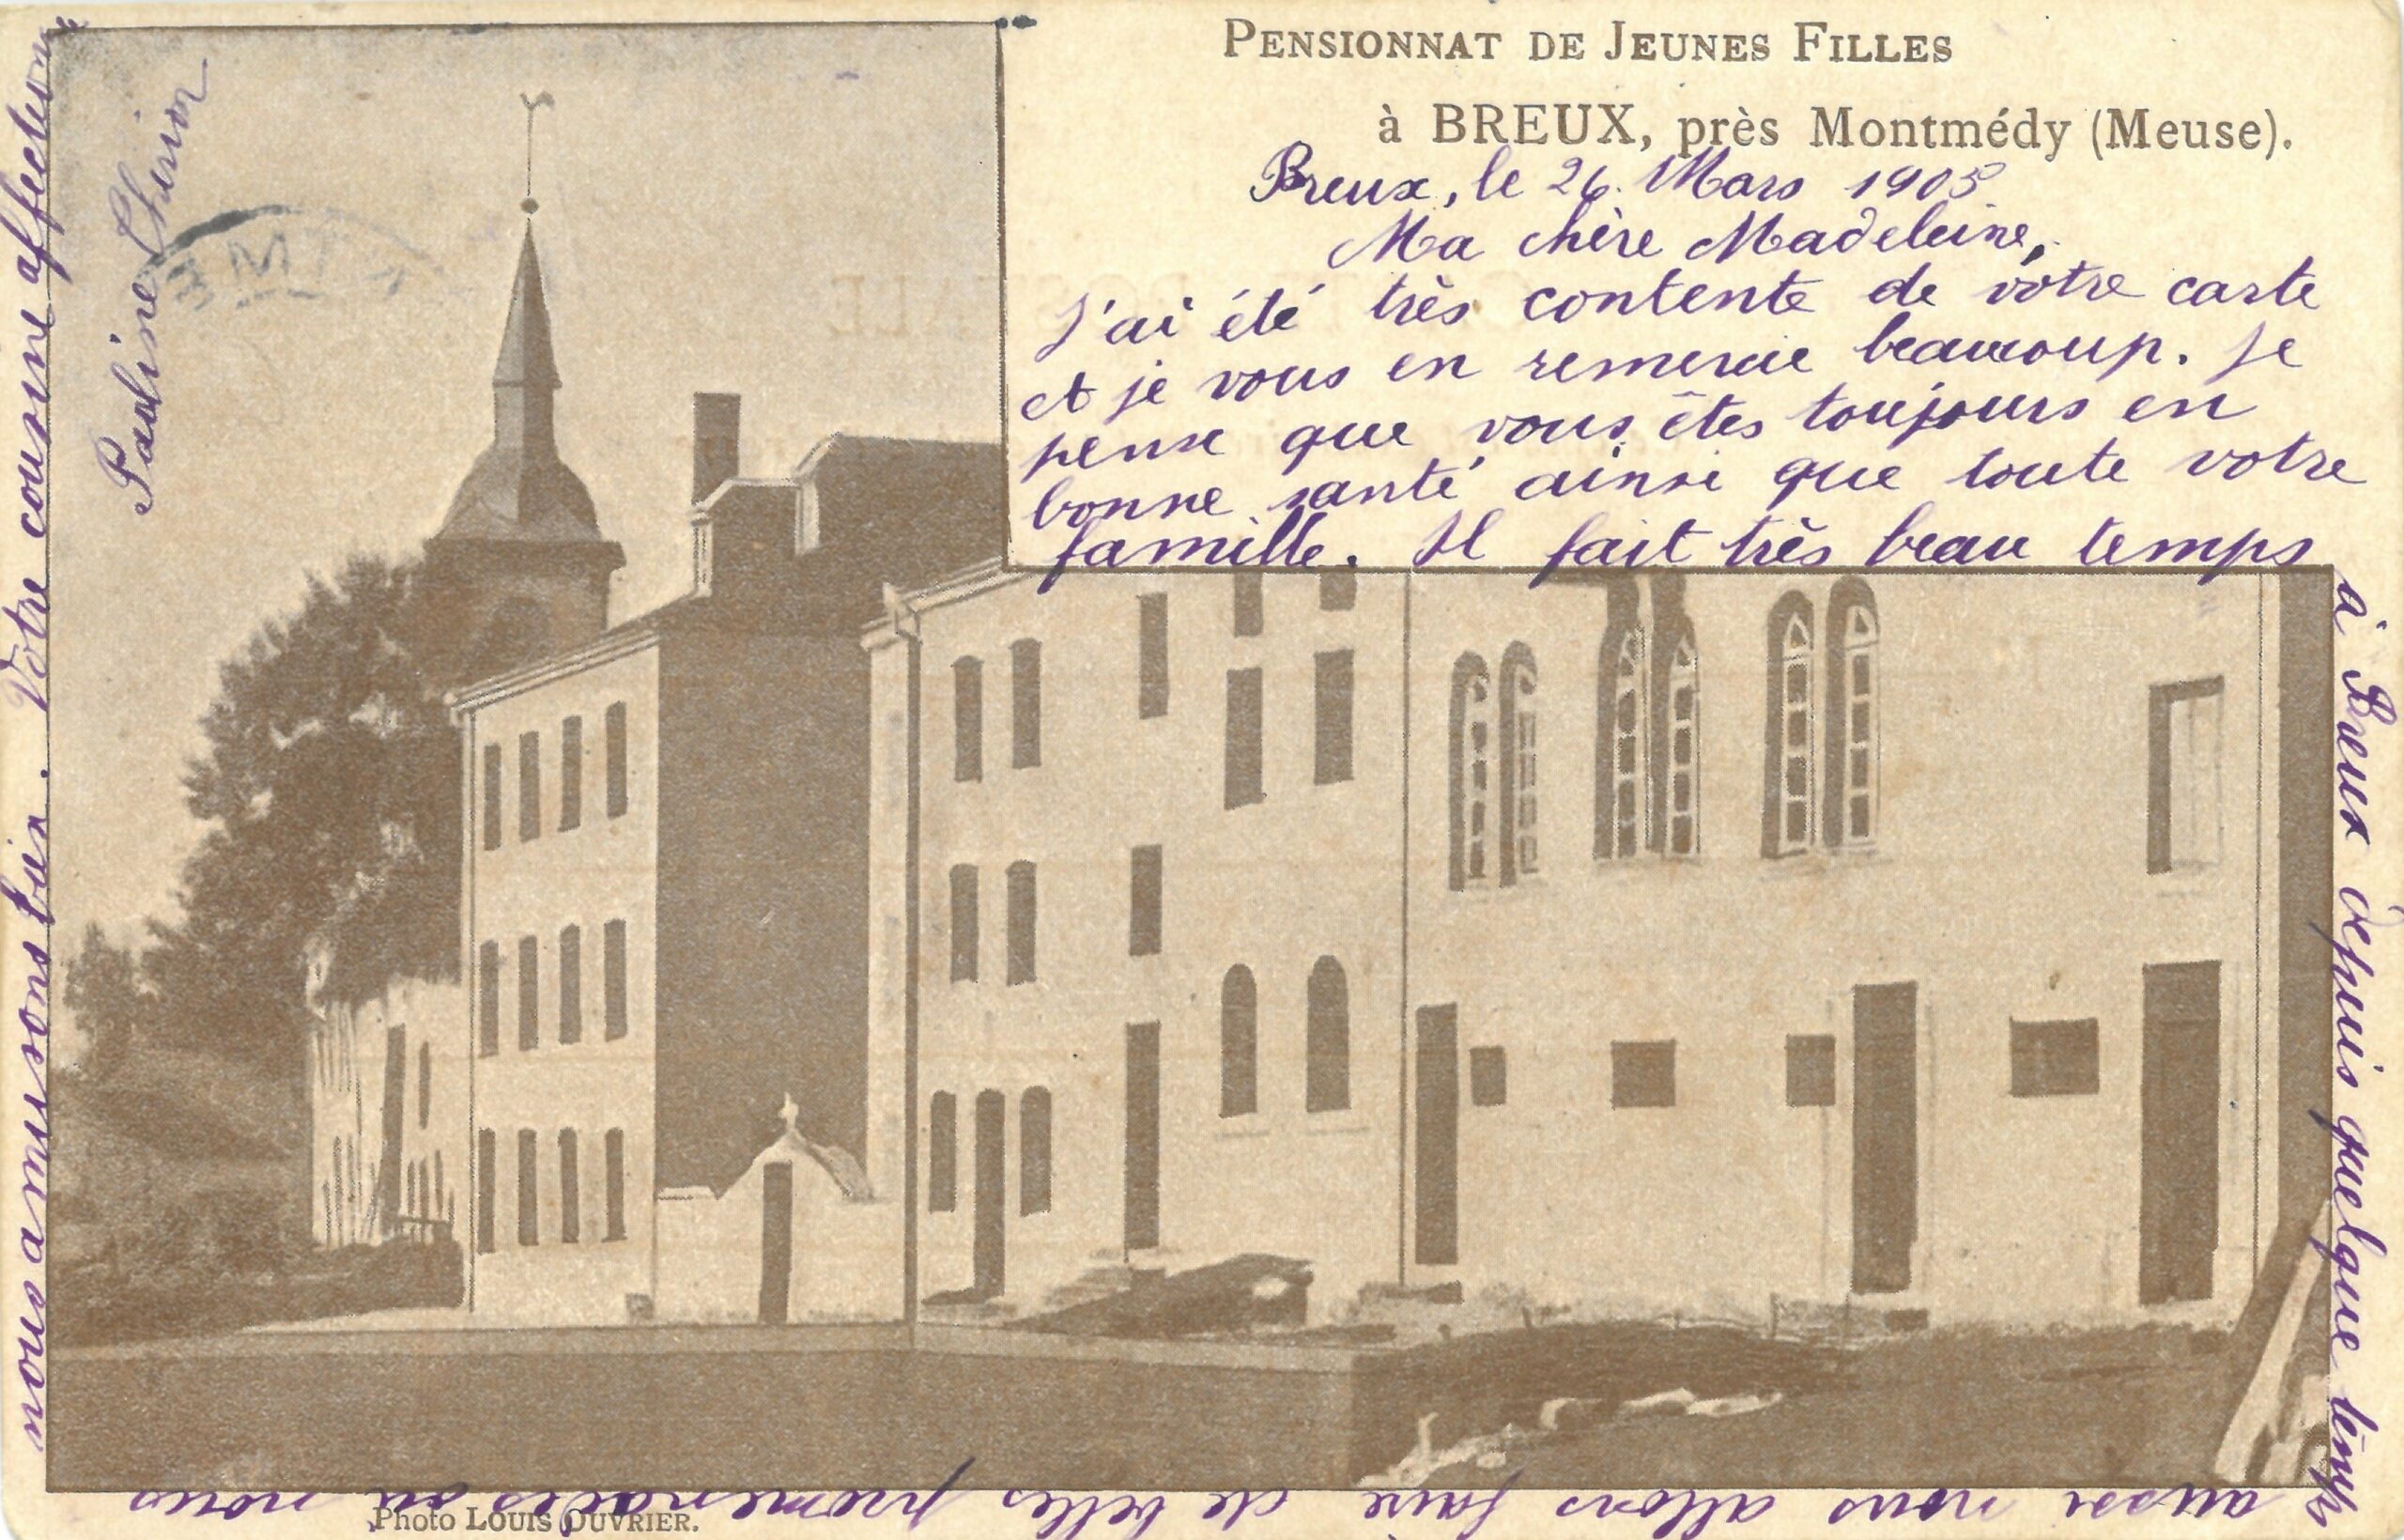 PENSIONNAT DE JEUNES FILLES
à BREUX, près Montmédy (Meuse).
Breux, le 26 Mars 1905
Ma chère Madeleine,
J'ai été très contente de votre carte
et je vous en remercie beaucoup. Je
pense que vous êtes toujours en
bonne santé ainsi que toute votre
famille. Il fait très beau temps
à Breux depuis quelque temps
aussi nous allons faire de belles promenades où nous
nous amusons bien. Votre cousine affectionnée
Pauline
Photo LOUIS OUVRIER.